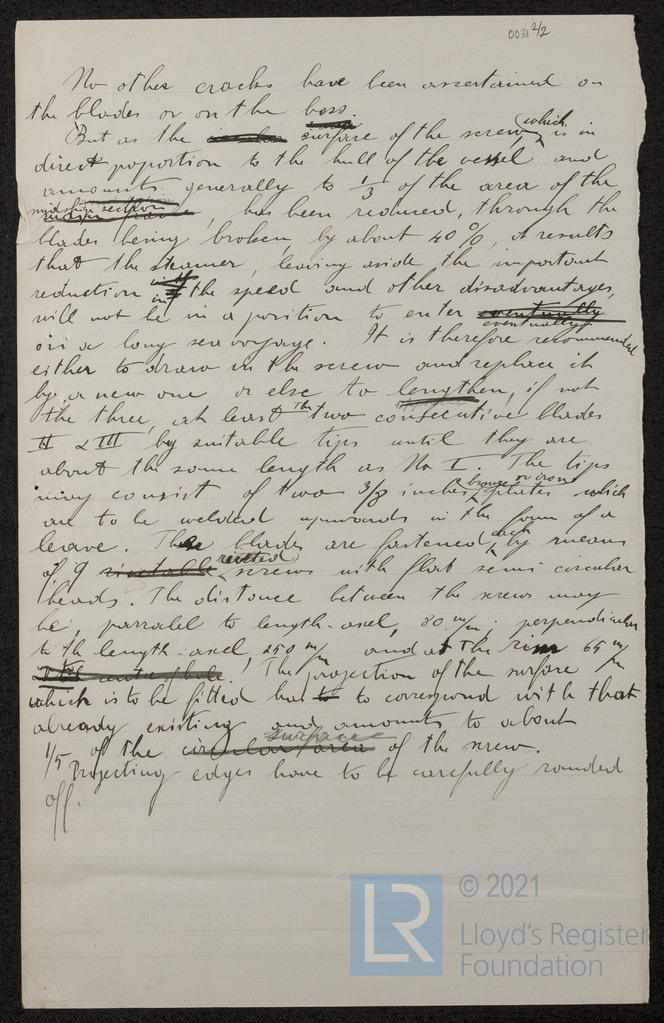 0031 2/2
No other cracks have been ascertained on
the blades or on the boss.
But as the surface of the screw, which is in
direct proportion to the hull of the vessel and
amounts generally to 1/3 of the area of the
midship section, has been reduced, through the
blades being broken by about 40%, it results
that the steamer, leaving aside the important
reduction in the speed and other disadvantages,
will not be in a position to enter eventually
on a long sea voyage. It is therefore recommended
either to draw in the screw and replace it
by a new one or else to lengthen, if not
the three, at least the two consecutive blades
II & III by suitable tips until they are
about the same length as No I. The tips
may consist of two 3/8 inches bronze or iron plates which
are to be welded upwards in the form of a
leave. The blades are fastened each by means
of 9 riveted screws with flat semi circular
heads. The distance between the screws may
be, parralel to length-axel, 80 m/m; perpendicular
to th length-axel, 250 m/m and at the rim 65 m/m
. The projection of the surface
which is to be fitted has to correspond with that
already existing and amounts to about
1/5 of the surface of the screw.
Projecting edges have to be carefully rounded
off.
© 2021
Lloyd's Register
Foundation
LR